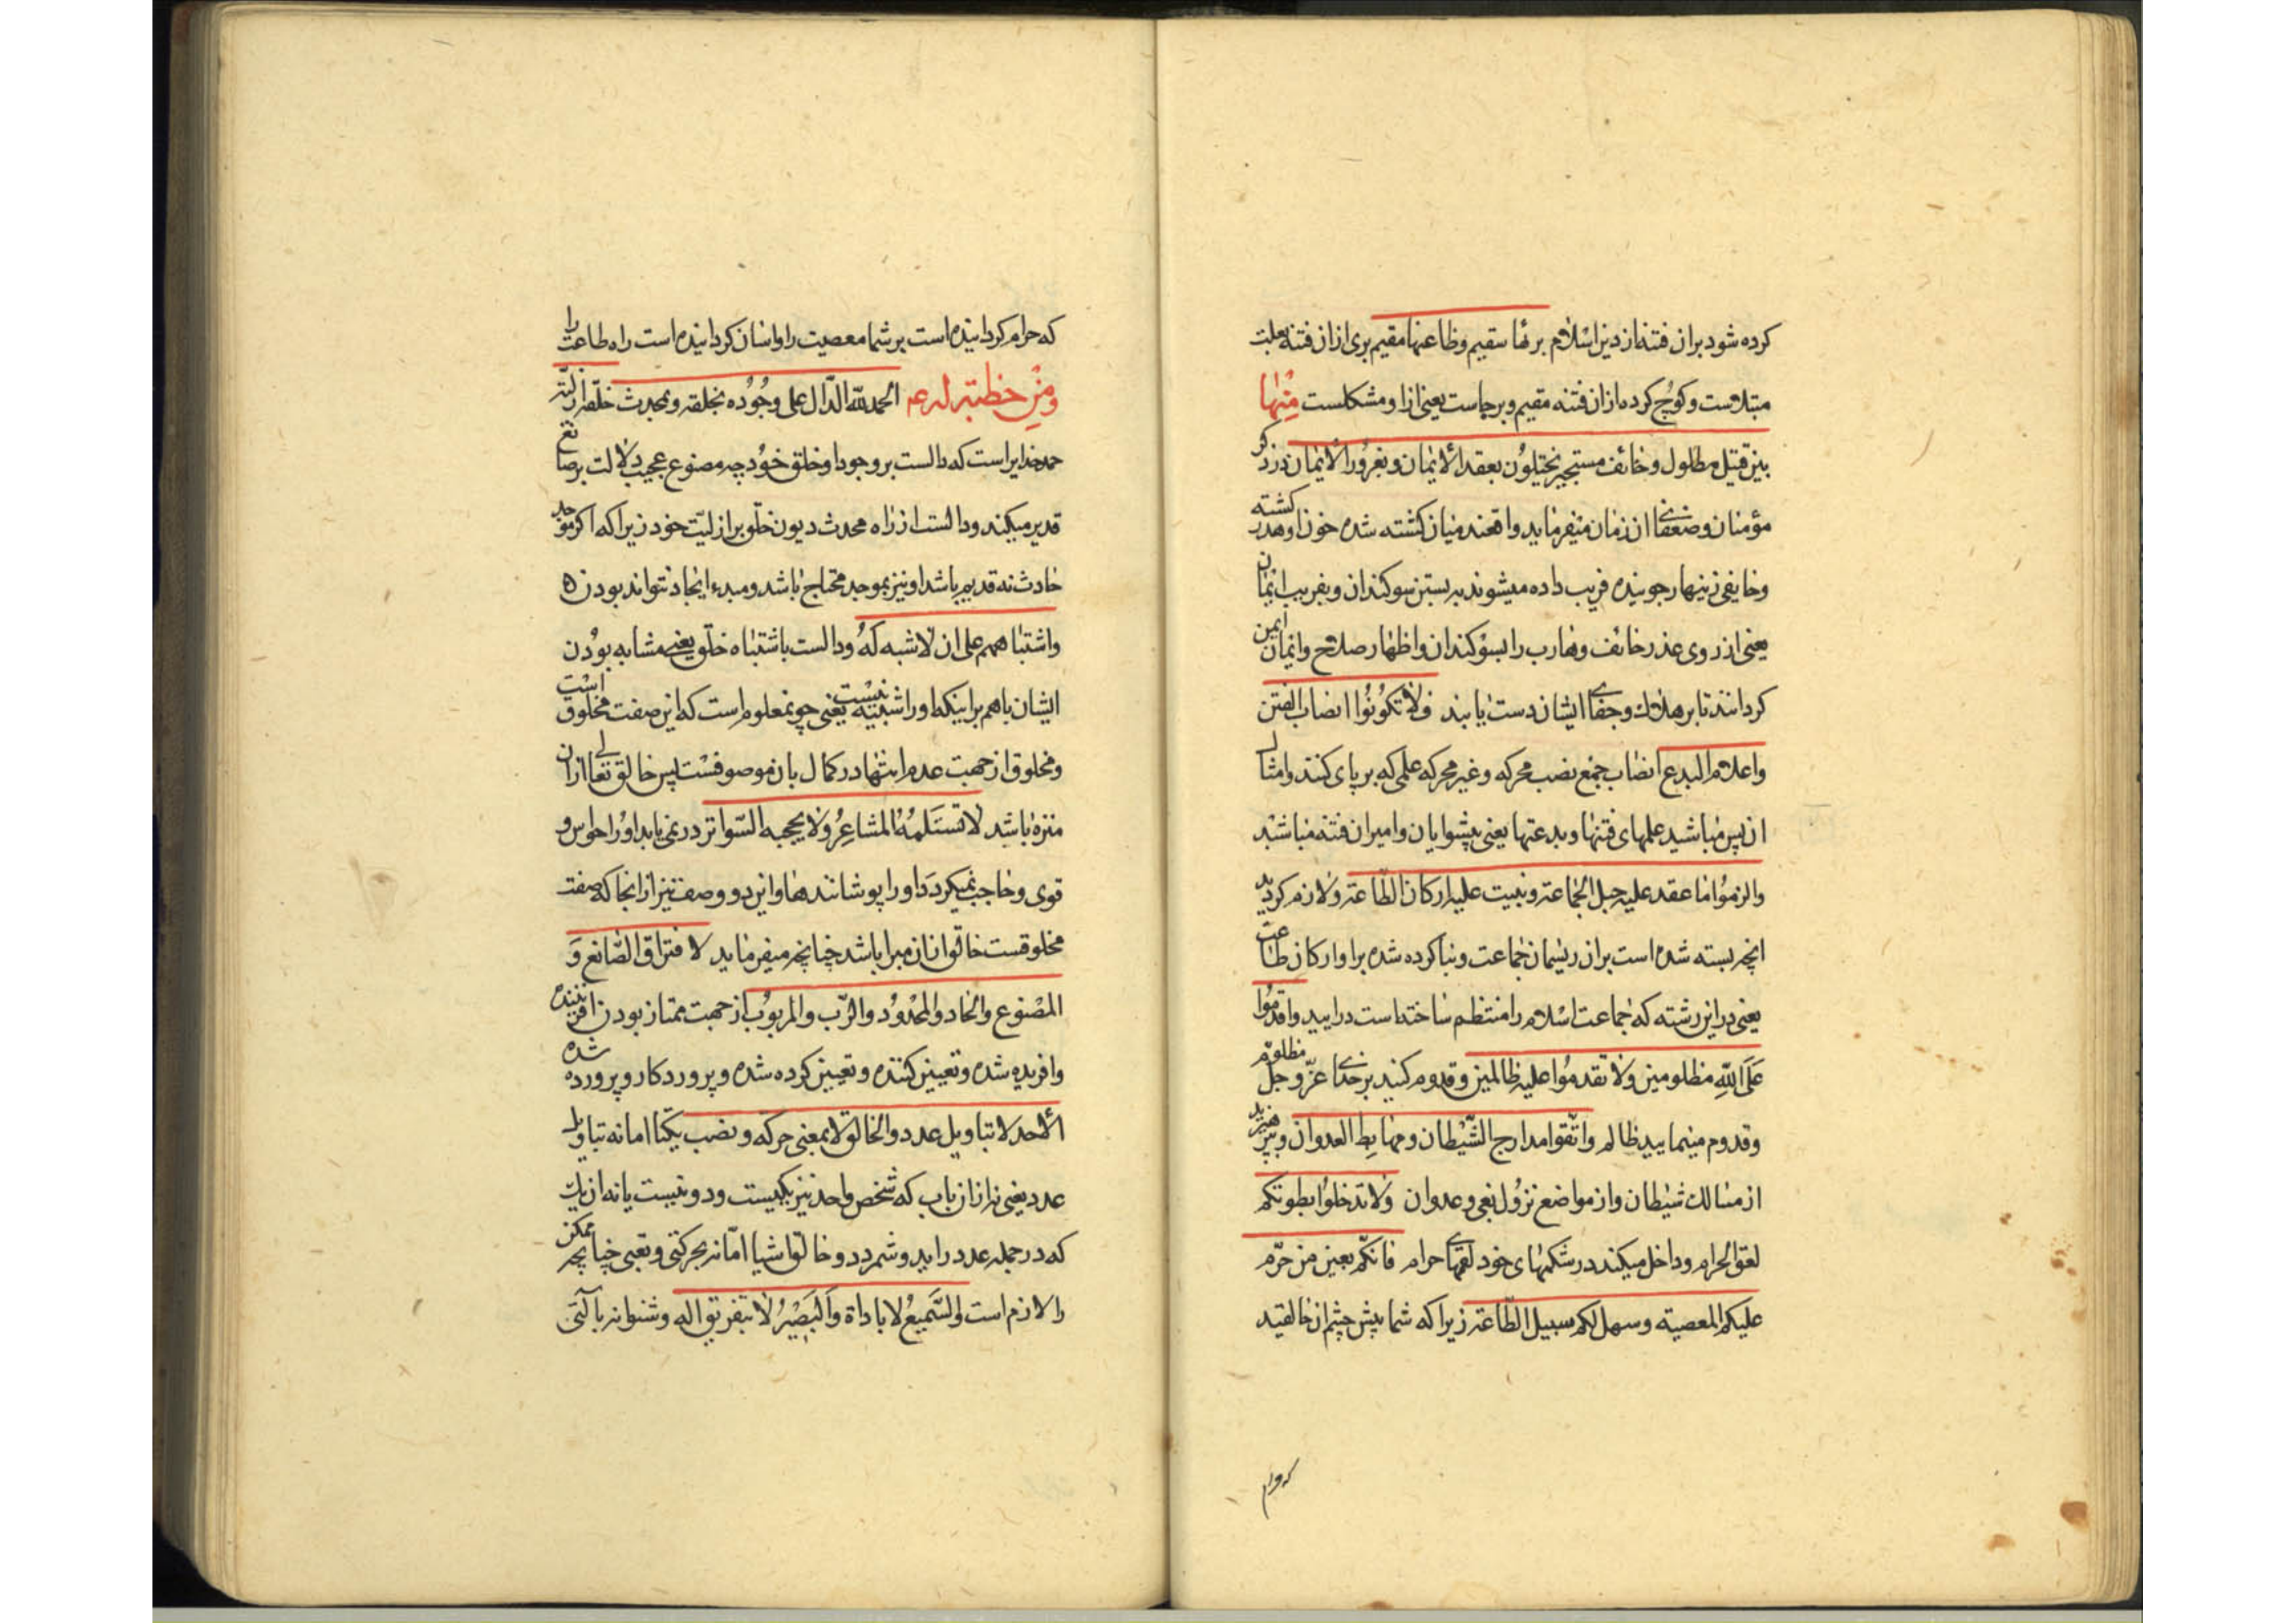 کرده شود بران فتنه از دین اسلام بریها سقیم وظاعنها مقیم بری ازان فتنه بعلت
مبتلاست وکوچ کرده ازان فتنه مقیم وبرجاست یعنی ازا ومشکلست مِنْها
بین قتیل مطلول وخائف مستجیر یختلون بعقد الایمان وبغرور الایمان درذکر
مؤمنان وضعفای ان زمان میفرماید واقعند میان کشته شده خون او هدر کشته
وخایفی زینهار جوینده فریب داده میشوند به بستن سوکندان وبفریب ایمان
یعنی از روی عذر خائف وهارب را بسوکندان واظهار صلاح وایمان ایمن
کردانند تا بر هلاک وجفای ایشان دست یابند فلا تکونوا انصاب الفتن
واعلام البدع انصاب جمع نصب محرکه وغیر محرکه علمی که بر پای کنند وامثال
ان پس مباشید علمهای فتنها وبدعتها یعنی پیشوایان وامیران فتنه مباشید
والزموا ما عقد علیه حبل الجماعة وبنیت علیه ارکان الطاعة ولازم کردید
انچه بسته شده است بران ریسمان جماعت وبنا کرده شده براو ارکان طاعت
یعنی دراین رشته که جماعت اسلام را منتظم ساخته است درایید واقدموا
عَلَی اللّهِ مظلومین ولا تقدموا علیه ظالمین وقدوم کنید بر خدای عزّ وجل مظلوم
وقدوم منمایید ظالم واتّقوا مدارج الشّیطان ومهابط العدوان وپرهیزید
از مسالک شیطان واز مواضع نزول بغی وعدوان ولا تدخلوا بطونکم
لعق الحرام وداخل میکنید در شکمهای خود لقمهای حرام فانکم بعین من حرّم
علیکم المعصیة وسهل لکم سبیل الطّاعة زیرا که شما پیش چشم ان خالقید
که حرام کردانیده است بر شما معصیت را واسان کردانیده است راه طاعت را
ومِنْ خطبة له ع الحمد للّه الدّال علی وجوده بخلقه وبمحدث خلقه ازلیّته
حمد خدایراست که دالست بر وجود او خلق خود چه مصنوع عجیب دلالت بر صانع
قدیر میکند ودالست از راه محدث دیون خلق بر ازلیّت خود زیرا که اکر موجد
حادث نه قدیم باشد او نیز بموجد محتاج باشد ومبدء ایجاد نتواند بودن ه
واشتباههم علی ان لا شبه لهُ ودالست باشتباه خلق یعنی مشابه بودن
ایشان باهم براینکه او را شبیه نیست یعنی چو نمعلوم است که این صفت مخلوق است
ومخلوق از جهت عدم انتها در کمال بان موصوفست پس خالق تعالی ازان
منزه باشد لا تستلمه المشاعر ولا یحجبه السّواتر در نمی یابد او را حواس و
قوی وحاجب نمیکردد او را پوشانندها واین دو وصف نیز ازانجا که صفت
مخلوقست خالق ازان مبرا باشد چنانچه میفرماید لافتراق الصّانع وَ
المصْنوع والحاد والمحدود والرّب والمربوب از جهت ممتاز بودن افریننده
وافریده شده وتعیین کننده وتعیین کرده شده وپروردکار وپرورده شده
الأحد لا بتاویل عدد والخالق لا بمعنی حرکه ونصب یکتا اما نه بتاویل
عدد یعنی نه ازان باب که شخص واحد نیز یکیست ودو نیست یا نه ان یک
که در جمله عدد دراید وشمردد وخالق اشیا امّا نه بحرکتی وتعبی چنانچه ممکن
را لازم است والسّمیع لا باداة والبصیر لا بتفریق اله وشنوا نه بآلتی